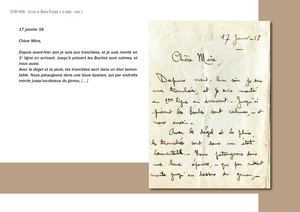 17 janvier 18
Chère Mère,
Depuis avant-hier soir je suis aux tranchées, et je suis monté en
1e ligne en arrivant. Jusqu'à présent les Boches sont calmes, et
nous aussi.
Avec le dégel et la pluie, les tranchées sont dans un état lamen-
table. Nous pataugeons dans une boue épaisse, qui par endroits
monte jusqu'au-dessus du genou, [...]
17 Janvier 18
Chère Mère,
Depuis avant-hier soir je suis
aux tranchées, et je suis monté
en 1e ligne en arrivant. Jusqu'à
présent les boches sont calmes, et
nous aussi.
Avec le dégel et la pluie,
les tranchées sont dans un état
lamentable. Nous pataugeons dans
une boue épaisse, qui par endroits
monte jusqu'au dessus du genou,